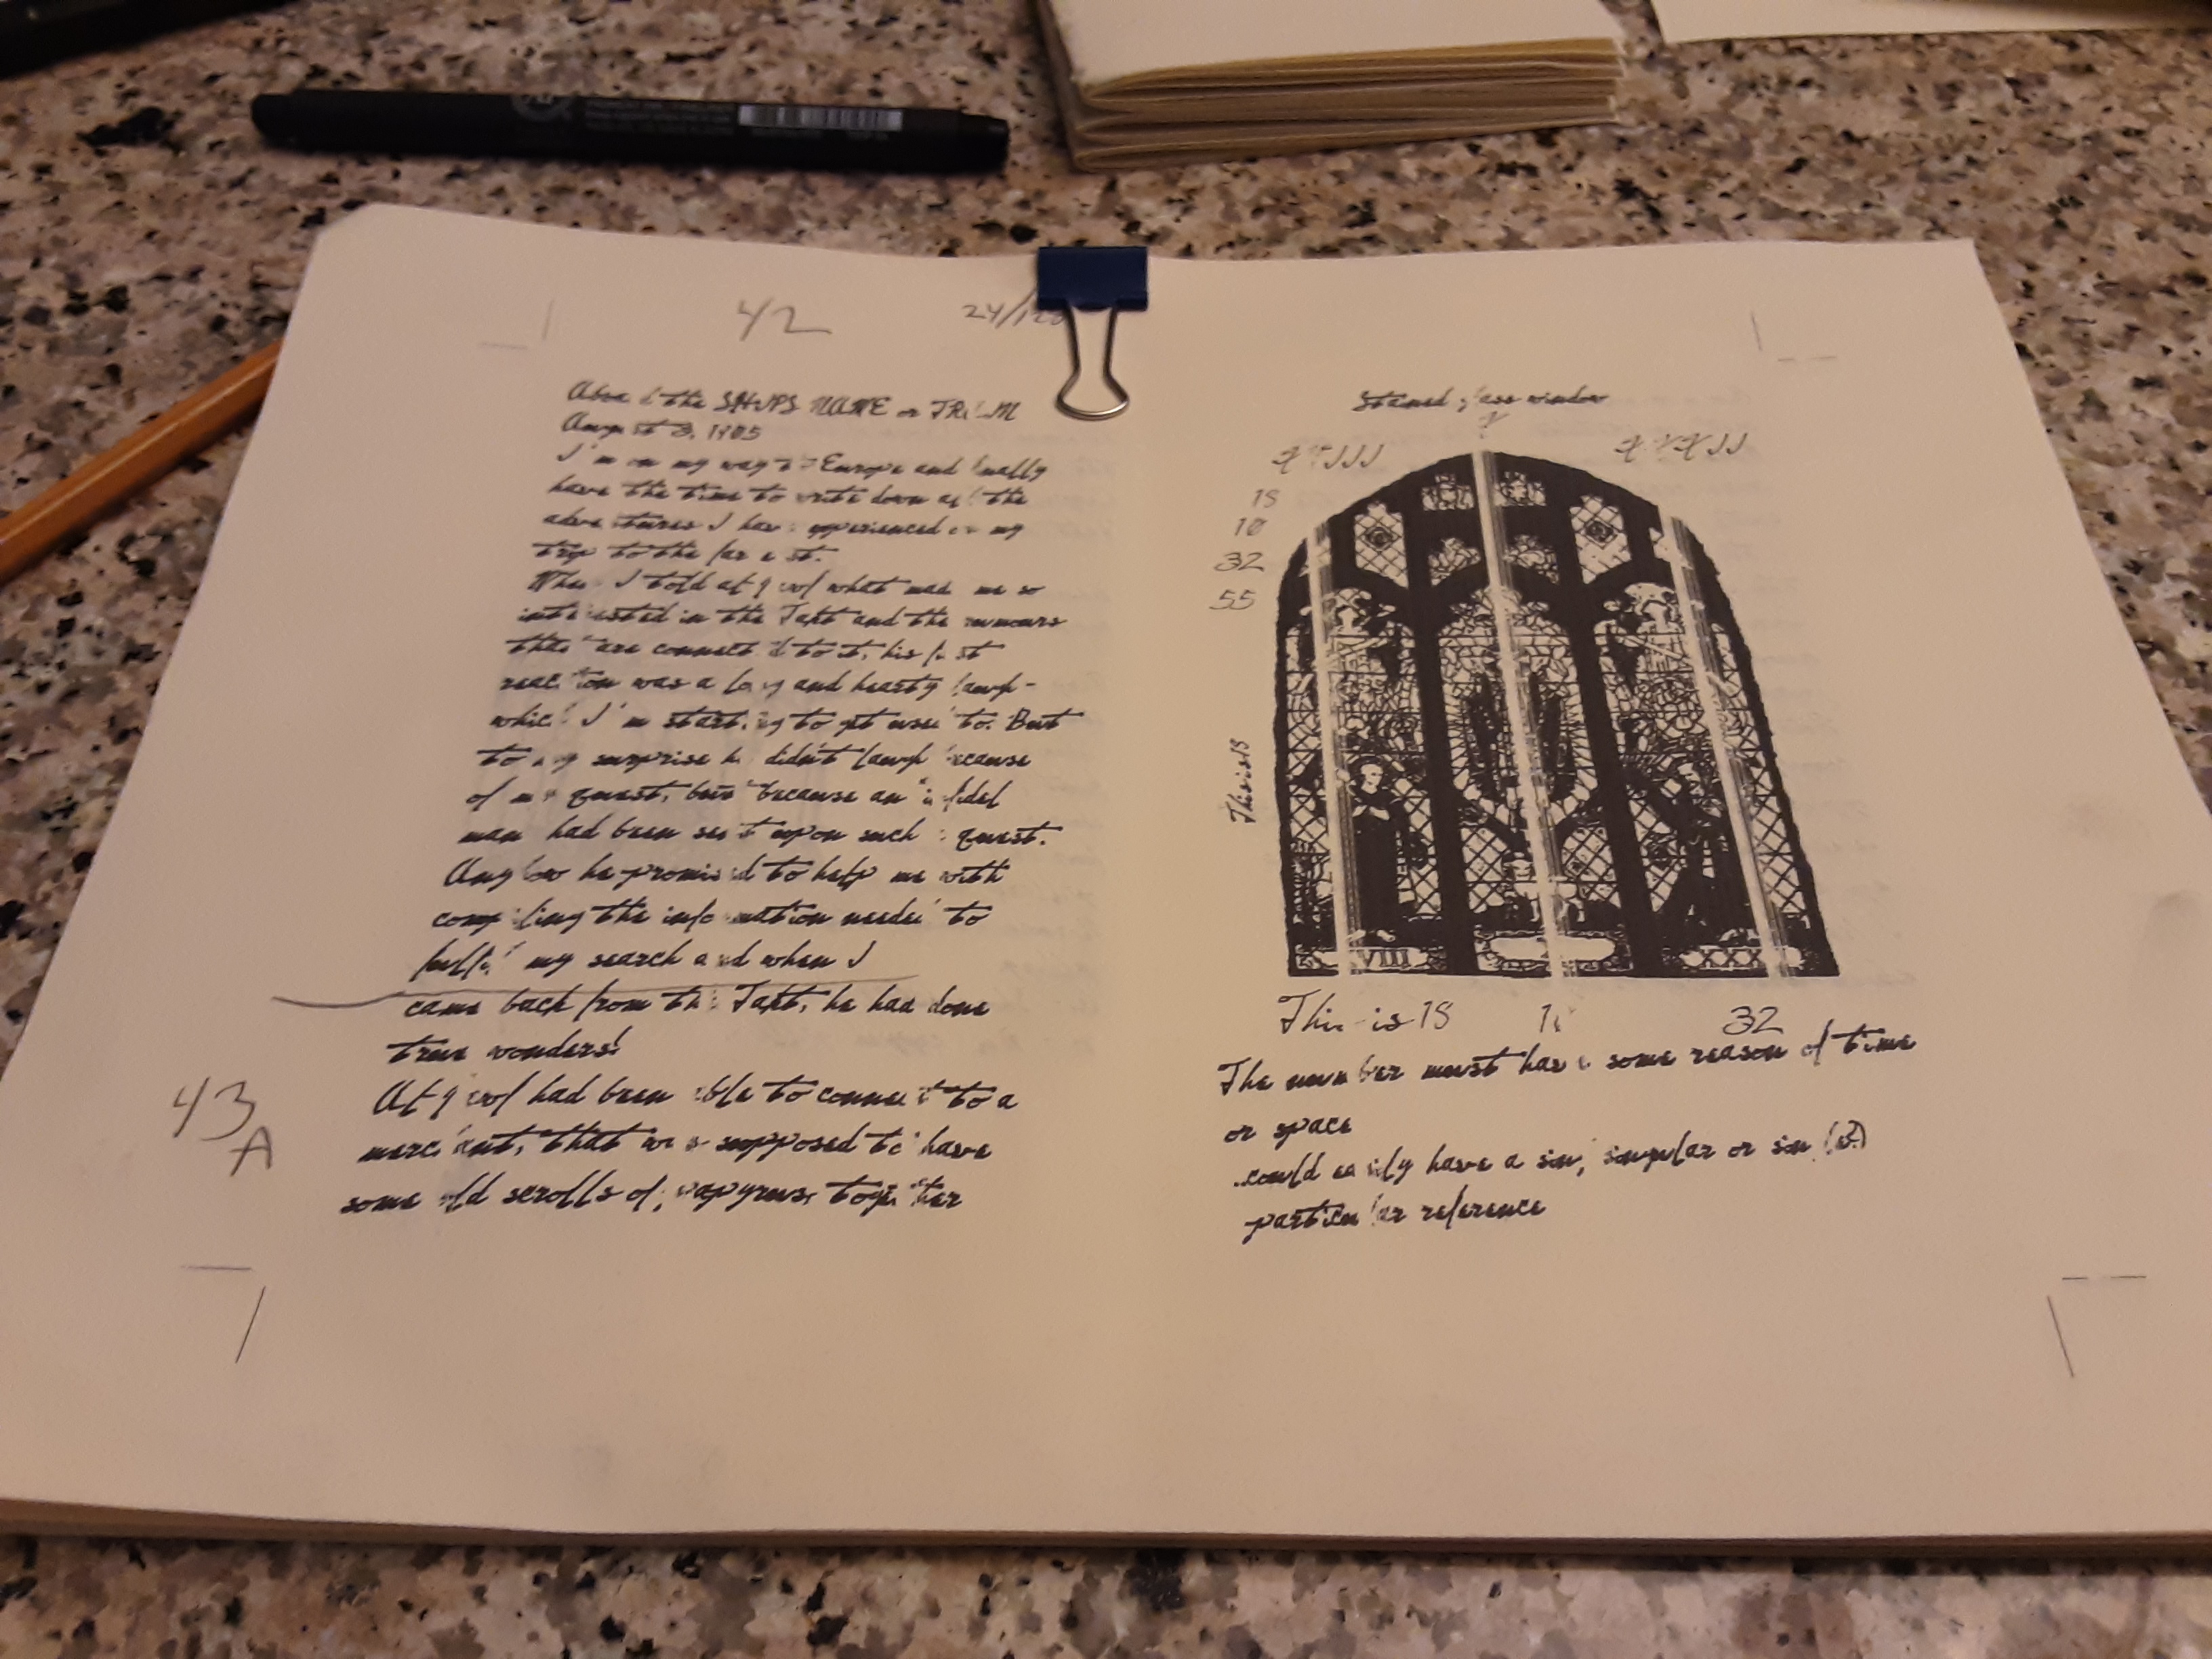 42
24/123
Aboard the SHIPS NAME or TRAM
August 3, 1905
I'm on my way to Europe and finally
have the time to write down all the
adventures I have experienced on my
trip to the far east.
When I told at g wol what made me so
interested in the Taxt and the rumours
that are connected to it, his first
reaction was a long and hearty laugh -
which I'm starting to get used to. But
to my surprise he didn't laugh because
of my quest, but because an infidel
man had been sent upon such a quest.
Anyhow he promised to help me with
compiling the information needed to
fulfil my search and when I
came back from the Taxt, he had done
true wonders!
At g wol had been able to connect to a
merchant, that was supposed to have
some old scrolls of papyrus, together
43
A
Stained glass window
X
XVIII
XXXII
18
10
32
55
This is 18
VIII
XXX
This is 18 10 32
The number must have some reason of time
or space
could easily have a sin, singular or sin (?)
particular reference